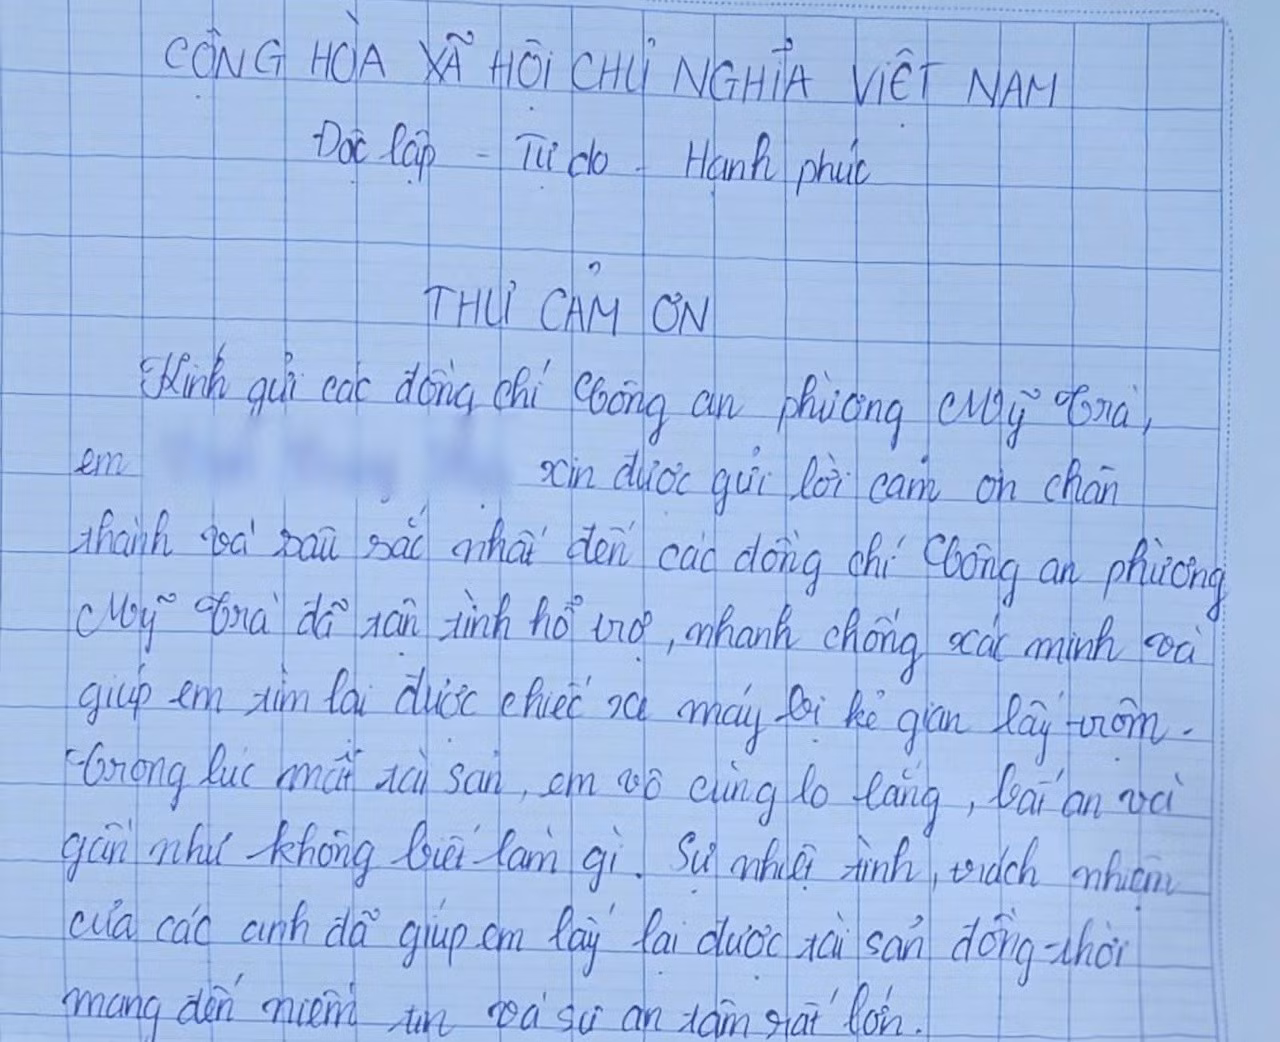 CỘNG HÒA XÃ HỘI CHỦ NGHĨA VIỆT NAM
Độc lập - Tự do - Hạnh phúc
THƯ CẢM ƠN
Kính gửi các đồng chí Công an phường Mỹ Trà,
em xin được gửi lời cảm ơn chân
thành và sâu sắc nhất đến các đồng chí Công an phường
Mỹ Trà đã tận tình hỗ trợ, nhanh chóng xác minh và
giúp em tìm lại được chiếc xe máy bị kẻ gian lấy trộm.
Trong lúc mất tài sản, em vô cùng lo lắng, bất an và
gần như không biết làm gì. Sự nhiệt tình, trách nhiệm
của các anh đã giúp em lấy lại được tài sản đồng thời
mang đến niềm tin và sự an tâm rất lớn.